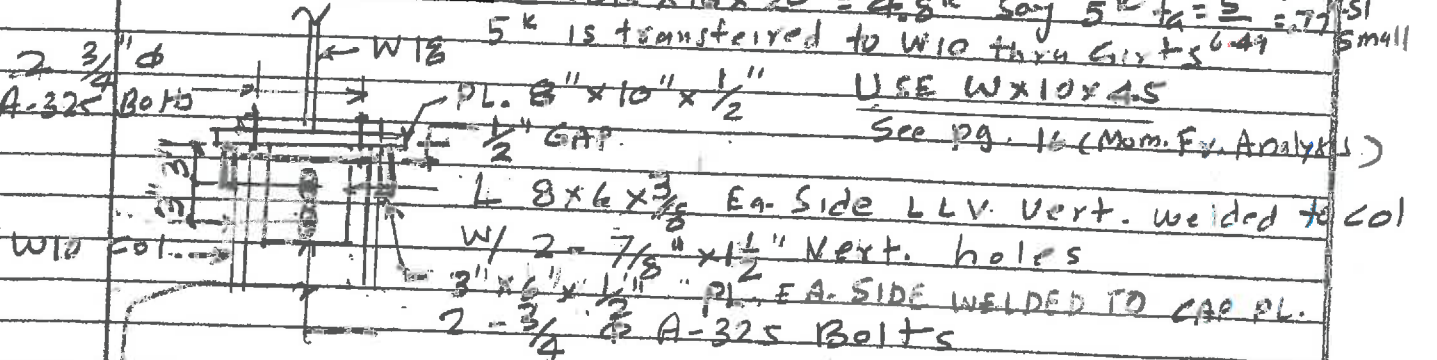 = 4.8ᵏ Say 5ᵏ fa = 5/6.49 = .77 ksi
5ᵏ is transferred to W10 thru Girts small
W18
2 3/4" φ
A-325 Bolts
PL. 8" x 10" x 1/2"
USE W x 10 x 45
1/2" GAP.
See pg. 16 (Mom. Fr. Analysis)
3" 3"
L 8 x 6 x 3/8 Ea. Side LLV. Vert. welded to col
W/ 2 - 7/8" x 1 1/2" Vert. holes
W10 Col.
3" x 6" x 1/2" PL. EA. SIDE WELDED TO CAP PL.
2 - 3/4 φ A-325 Bolts